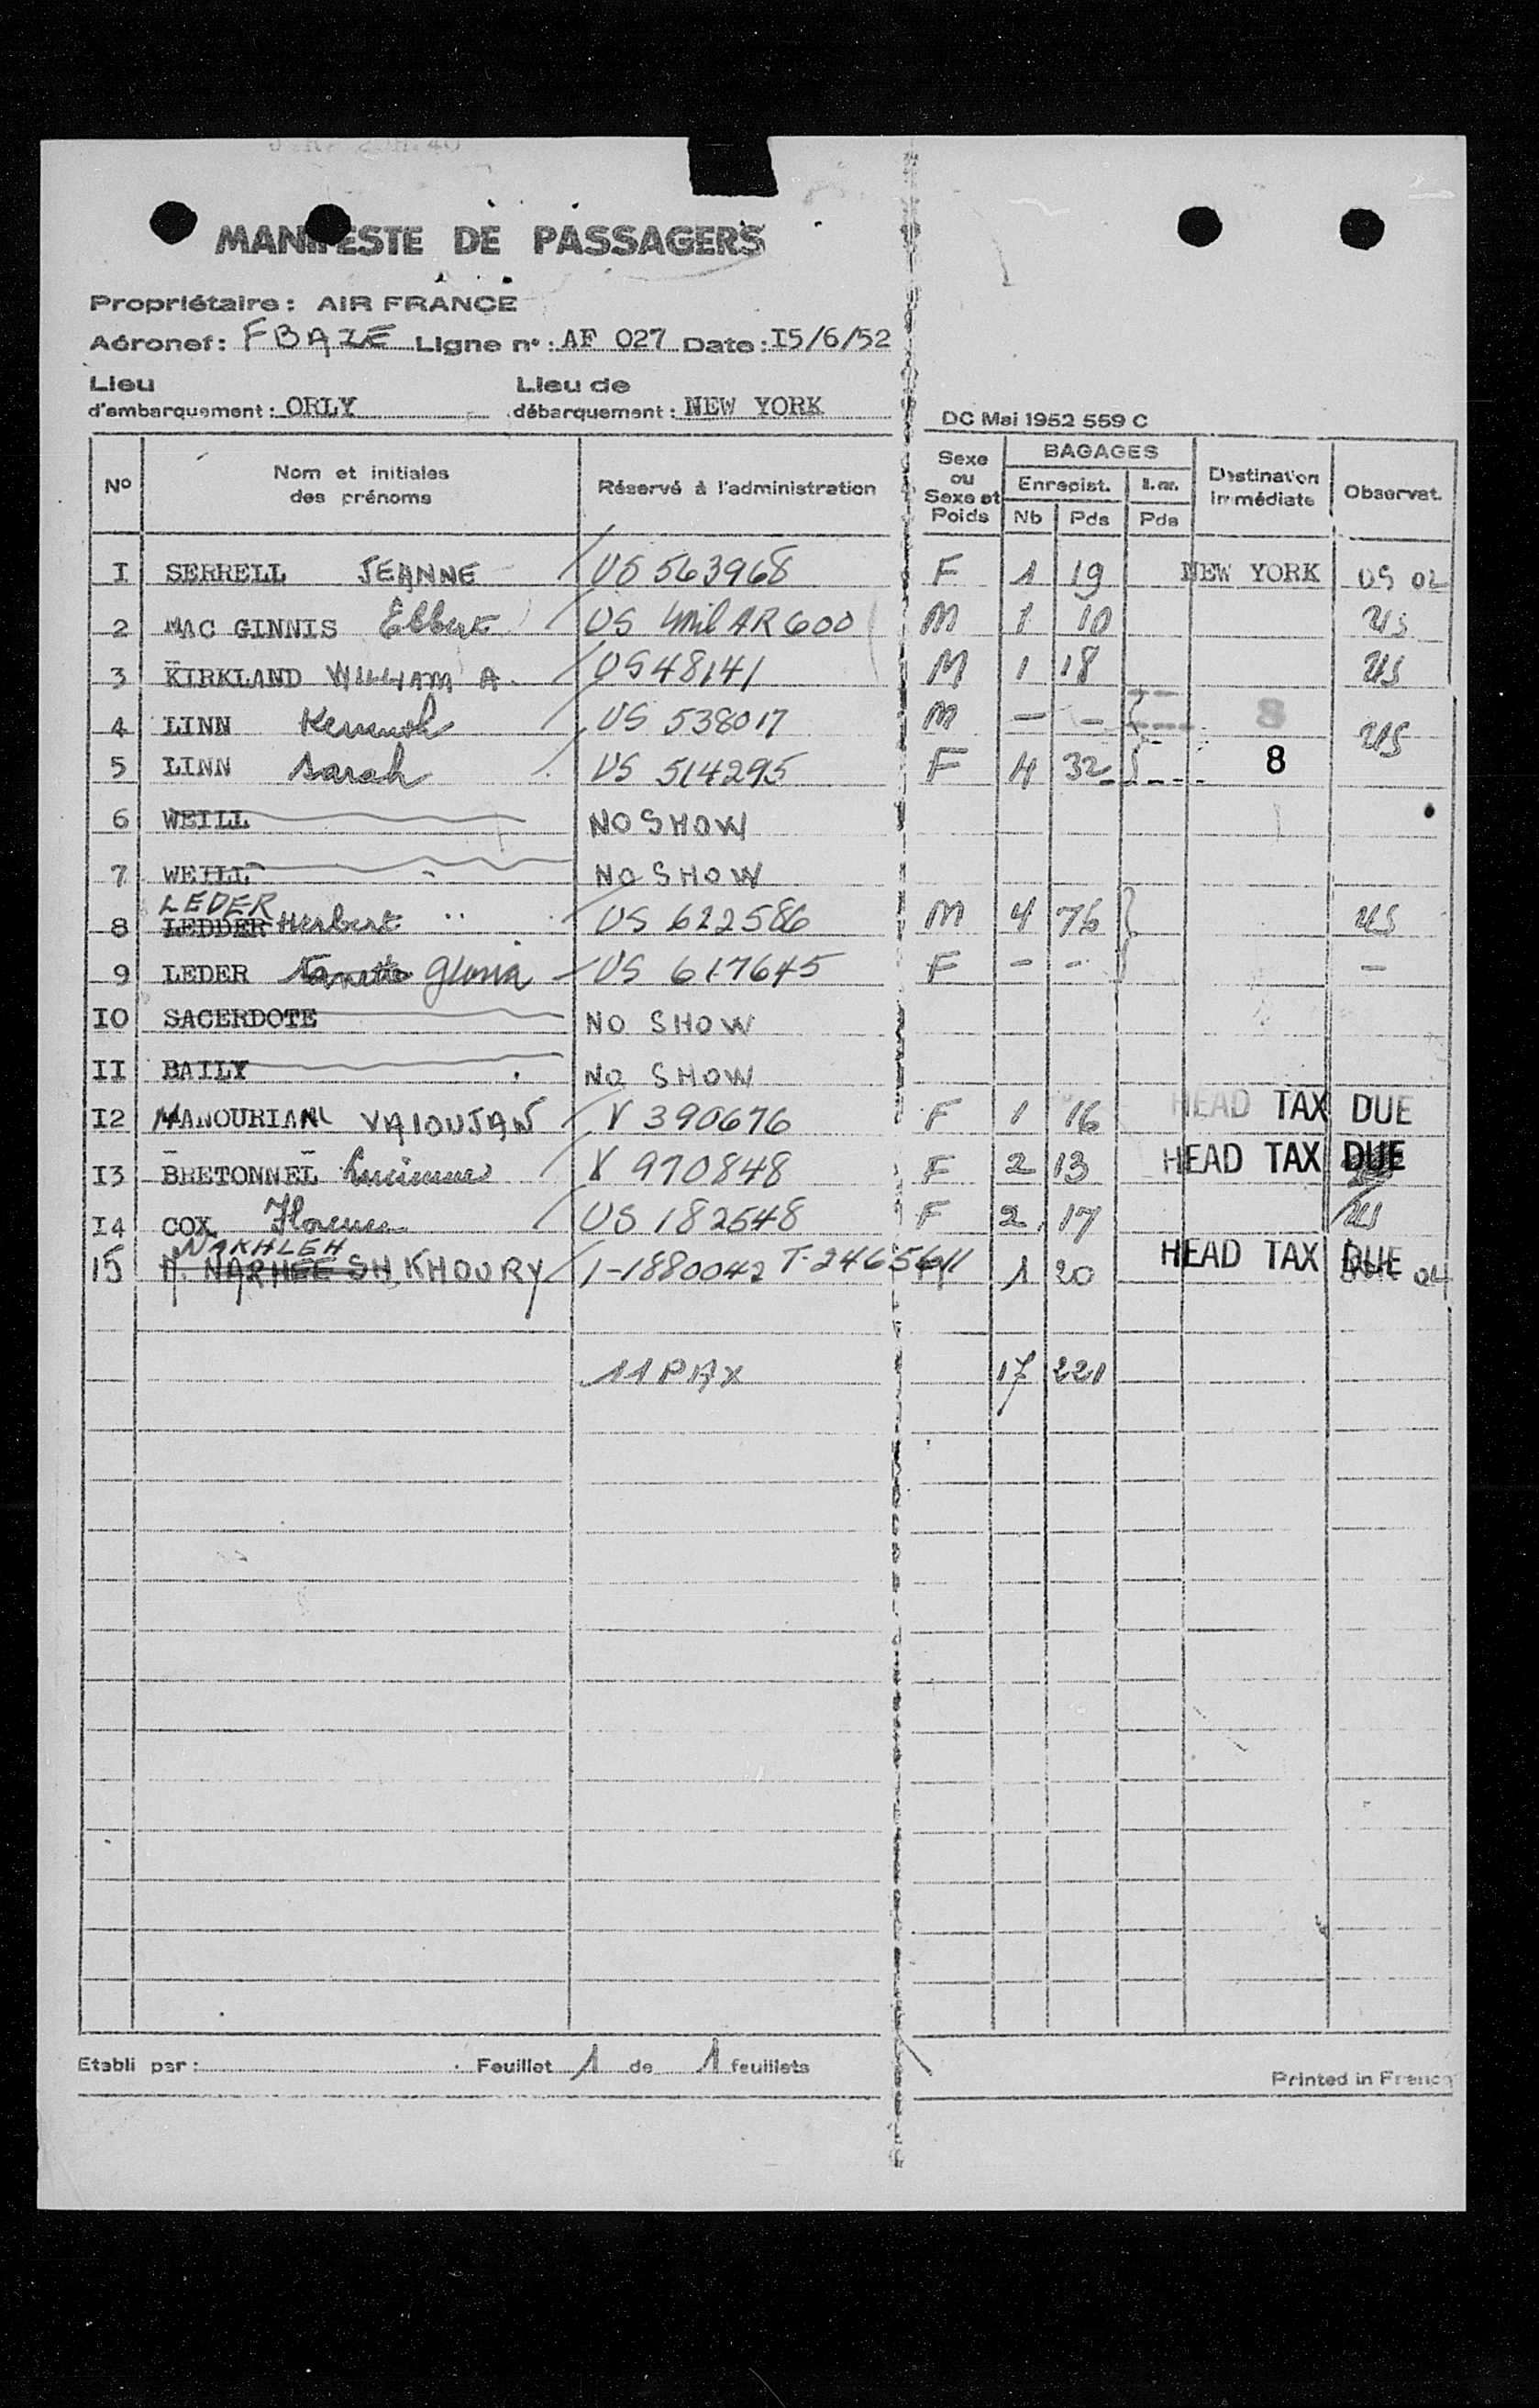 MANIFESTE DE PASSAGERS
Propriétaire: AIR FRANCE
Aéronef: FBAZE Ligne n°: AF 027 Date: I5/6/52
Lieu d'embarquement: ORLY Lieu de débarquement: NEW YORK
DC Mai 1952 559 C
N° Nom et initiales des prénoms Réservé à l'administration Sexe ou Sexe et Poids BAGAGES Enregist. Nb Pds Pds Destination Immédiate Observat.
I SERRELL JEANNE US 563968 F 1 19 NEW YORK US 02
2 MAC GINNIS Elbert US AR 600 M 1 10 US
3 KIRKLAND WILLIAM A. US 48141 M 1 18 US
4 LINN Kenneth US 538017 M - - 8
5 LINN Sarah US 514295 F 4 32 8 US
6 WEILL NO SHOW
7 WEILL NO SHOW
LEDER
8 LEDDER Herbert US 622586 M 4 76 US
9 LEDER Nanette Gloria US 617645 F - - -
IO SACERDOTE NO SHOW
II BAILY NO SHOW
I2 MANOURIAN VAIOUJAN V 390676 F 1 16 HEAD TAX DUE
I3 BRETONNEL Lucienne V 970848 F 2 13 HEAD TAX DUE
I4 COX Florence US 182548 F 2 17 US
NAKHLEH
15 KHOURY I-1880042 T-2465611 1 20 HEAD TAX DUE 04
11 PAX 17 221
Etabli par: Feuillet 1 de 1 feuillets
Printed in France